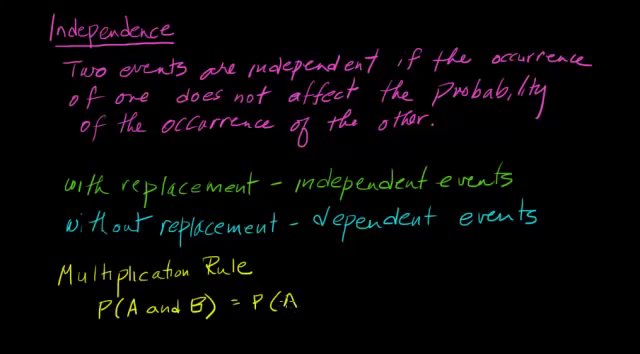 Independence
Two events are independent if the occurrence
of one does not affect the probability
of the occurrence of the other.
with replacement - independent events
without replacement - dependent events
Multiplication Rule
P(A and B) = P(A